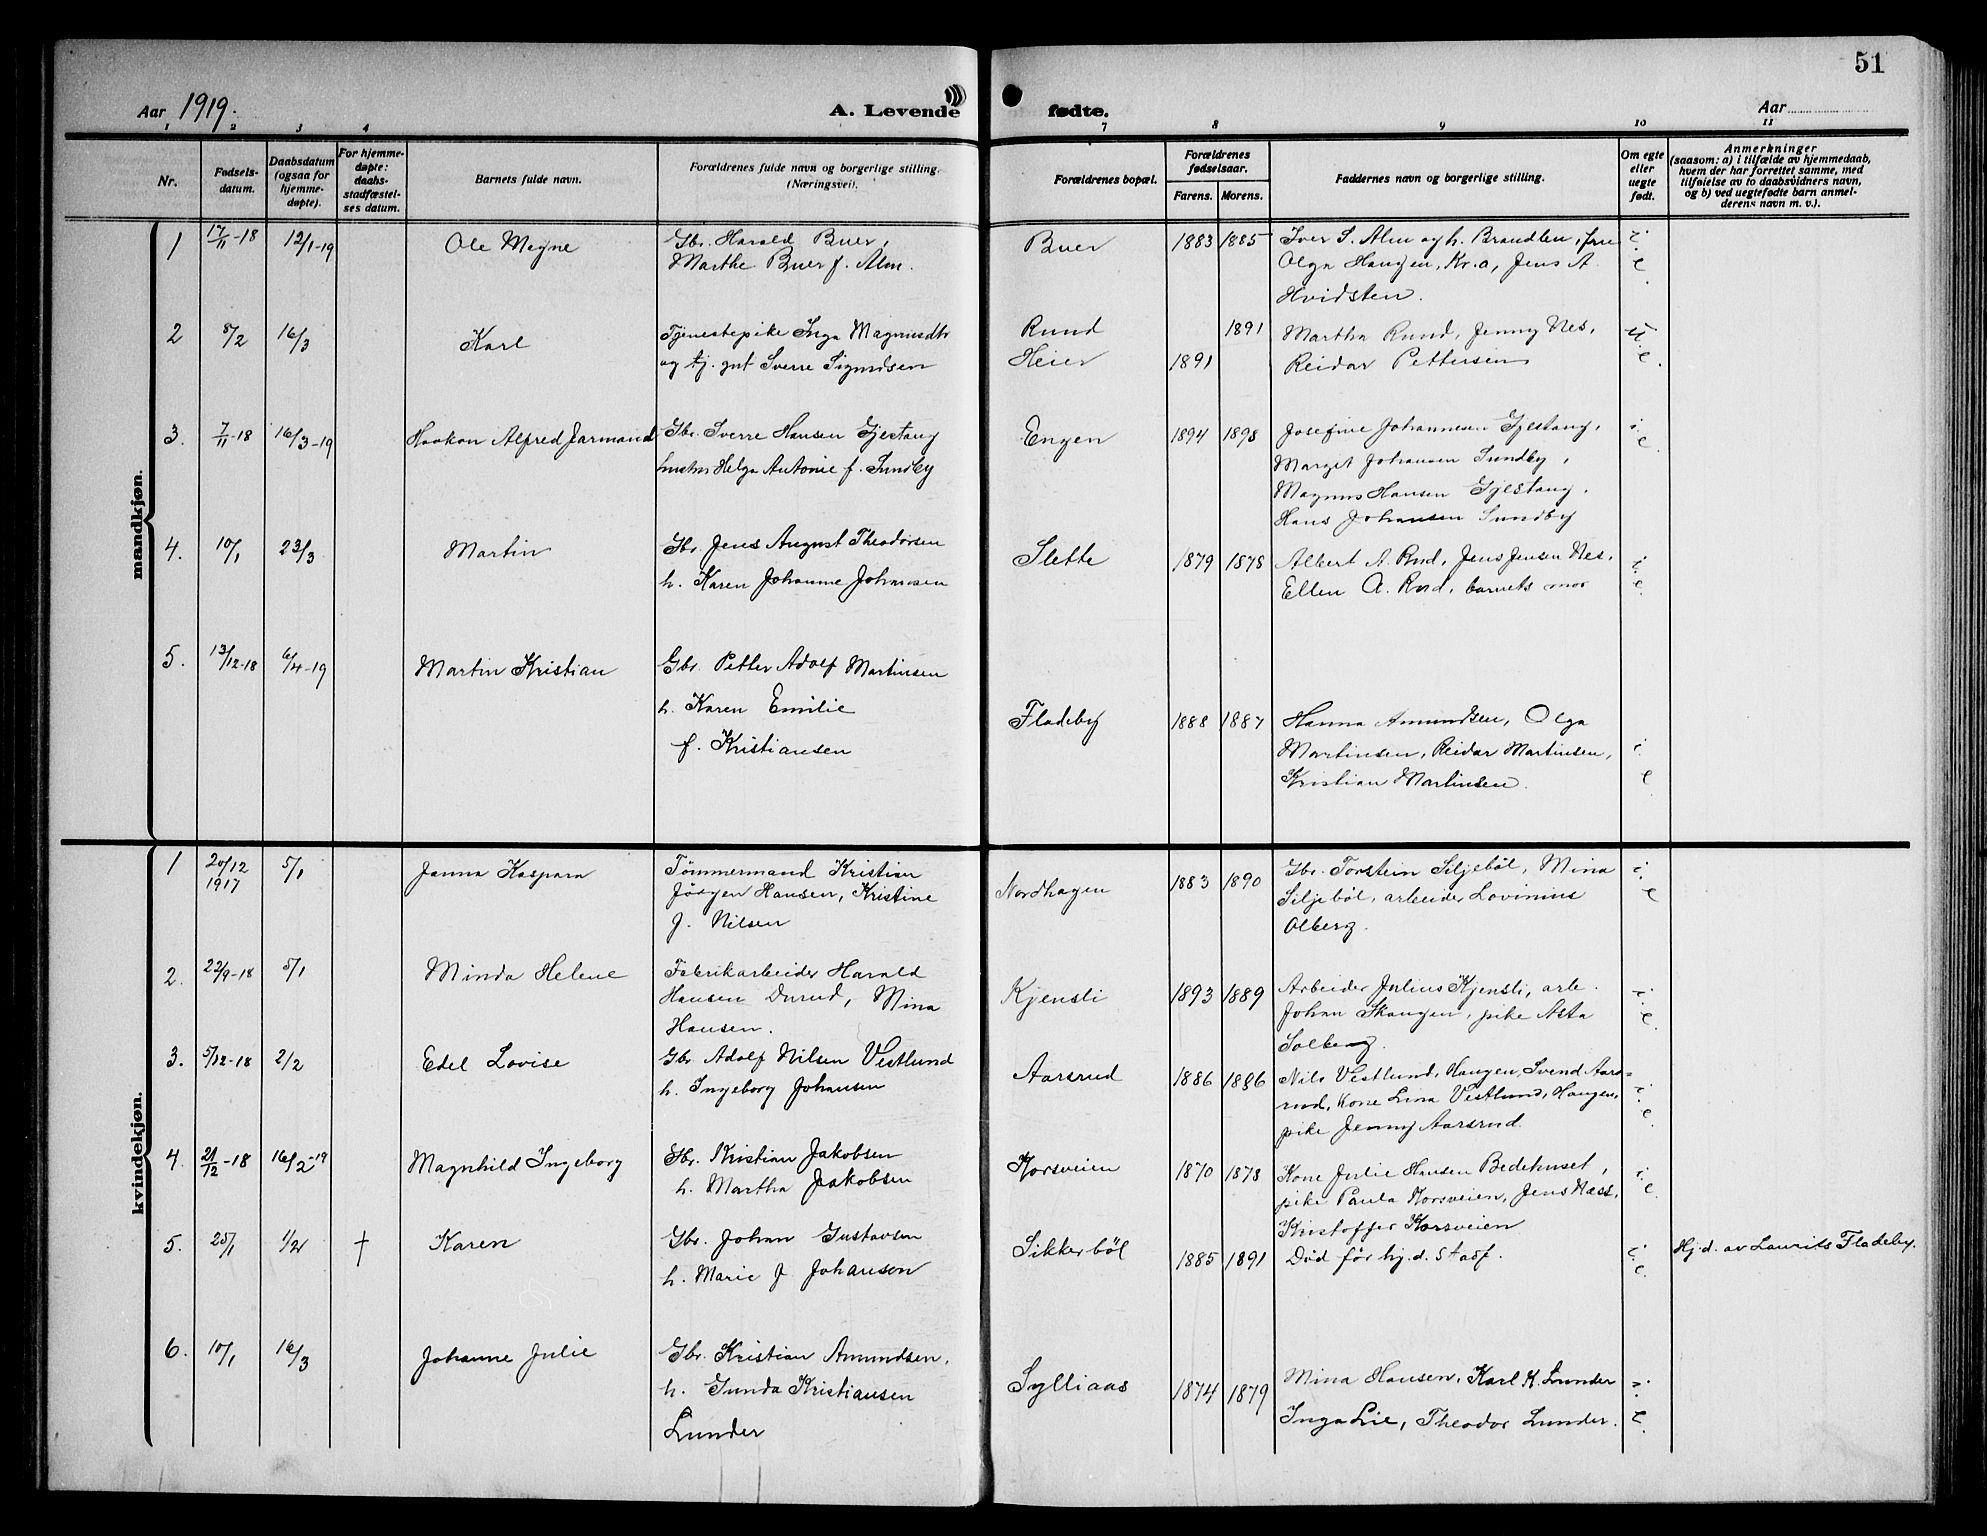 51
Aar 1919.
A. Levende fødte.
Aar
1 2 3 4 7 8 9 10 11
Nr.
Fødsels-
datum.
Daabsdatum
(ogsaa for
hjemme-
døpte).
For hjemme-
døpte:
daabs-
stadfæstel-
ses datum.
Barnets fulde navn.
Forældrenes fulde navn og borgerlige stilling.
(Næringsvei).
Forældrenes bopæl.
Forældrenes
fødselsaar.
Farens. Morens.
Faddernes navn og borgerlige stilling.
Om egte
eller
uegte
født.
Anmerkninger
(saasom: a) i tilfælde av hjemmedaab,
hvem der har forrettet samme, med
tilføielse av to daabsvidners navn,
og b) ved uegtefødte barn anmel-
derens navn m. v.).
mandkjøn.
1 17/11-18 12/1-19 Ole Magne
Gbr. Harald Buer,
Marthe Buer f. Alm.
Buer 1883 1885
Iver S. Alm og h. Brandlen, fru
Olga Haugen, Kr.a, Jens A.
Hvidsten.
i. e.
2 8/2 16/3 Karl
Tjenestepike Inga Magnusdtr
og tj. gut Sverre Sigurdsen
Rund 1891
Heier 1891
Martha Rund, Jenny Nes,
Reidar Pettersen
u. e.
3. 7/11-18 16/3-19 Haakon Alfred Jarmand
Gbr. Sverre Hansen Gjestang
hustru Helga Antonie f. Sundby
Engen 1894 1898
Josefine Johannesen Gjestang,
Margit Johansen Sundby,
Magnus Hansen Gjestang,
Hans Johansen Sundby
i. e.
4. 10/1 23/3 Martin
Gbr. Jens August Theodorsen
h. Karen Johanne Johansen
Slette 1879 1878
Albert A. Rud, Jens Jensen Nes,
Ellen A. Rud, barnets mor
i. e.
5. 13/12-18 6/4-19 Martin Kristian
Gbr. Petter Adolf Martinsen
h. Karen Emilie
f. Kristiansen
Fladeby 1888 1887
Hanna Amundsen, Olga
Martinsen, Reidar Martinsen,
Kristian Martinsen.
i. e.
kvindekjøn.
1 20/12 1917 5/1 Janna Kaspara
Tømmermand Kristian
Jörgen Hansen, Kristine
f. Nilsen
Nordhagen 1883 1890
Gbr. Torstein Siljeböl, Mina
Siljeböl, arbeider Lovinius
Olberg.
i. e
2. 22/9-18 5/1 Minda Helene
Fabrikarbeider Harald
Hansen Durud, Mina
Hansen.
Kjensli 1893 1889
Arbeider Julius Kjensli, arb.
Johan Skaugen, pike Asta
Solberg.
i. e.
3. 5/12-18 2/2 Edel Lovise
Gbr Adolf Nilsen Vestlund
h. Ingeborg Johansen
Aarsrud 1886 1886
Nils Vestlund, Haugen, Svend Aars=
rud, Kone Lina Vestlund, Haugen,
pike Jenny Aarsrud.
i. e.
4. 21/12-18 16/2-19 Magnhild Ingeborg
Gbr. Kristian Jakobsen
h. Martha Jakobsen
Korsveien 1870 1878
Kone Julie Hansen Bedehuset,
pike Paula Korsveien, Jens Næss,
Kristoffer Korsveien
i. e.
5. 25/1 1/2 † Karen
Gbr. Johan Gustavsen
h. Marie J Johansen
Sikkerböl 1885 1891
Död før hj.d. stadf.
i. e.
Hj.d. av Laurits Fladeby.
6. 10/1 16/3 Johanne Julie
Gbr. Kristian Amundsen,
h. Gunda Kristiansen
Lunder
Sylliaas 1874 1879
Mina Hansen, Karl K. Lunder
Inga Lie, Theodor Lunder.
i. e.